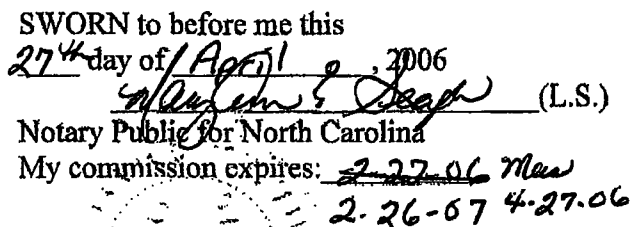 SWORN to before me this
27th day of April, 2006
(L.S.)
Notary Public for North Carolina
My commission expires: 2-27-06
2-26-07 4-27-06